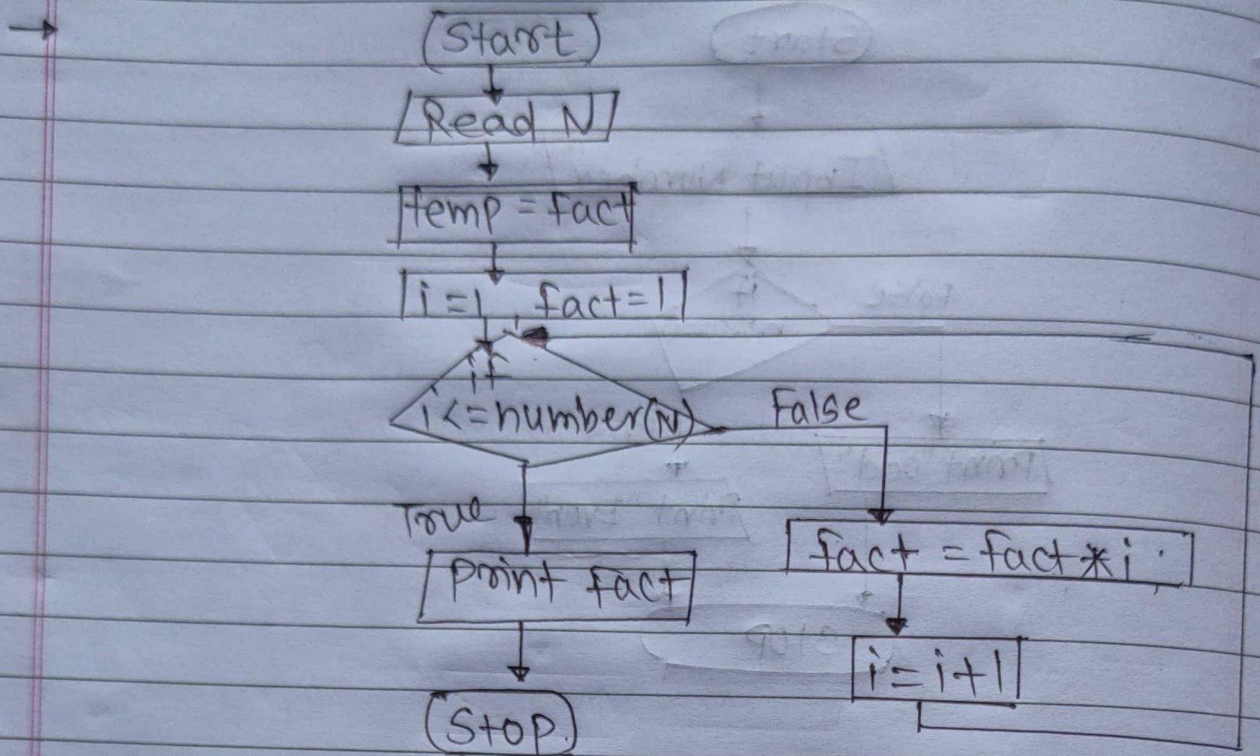 Start
Read N
temp = fact
i=1, fact=1
if
i<=number(N)
False
True
fact = fact*i
print fact
i=i+1
Stop